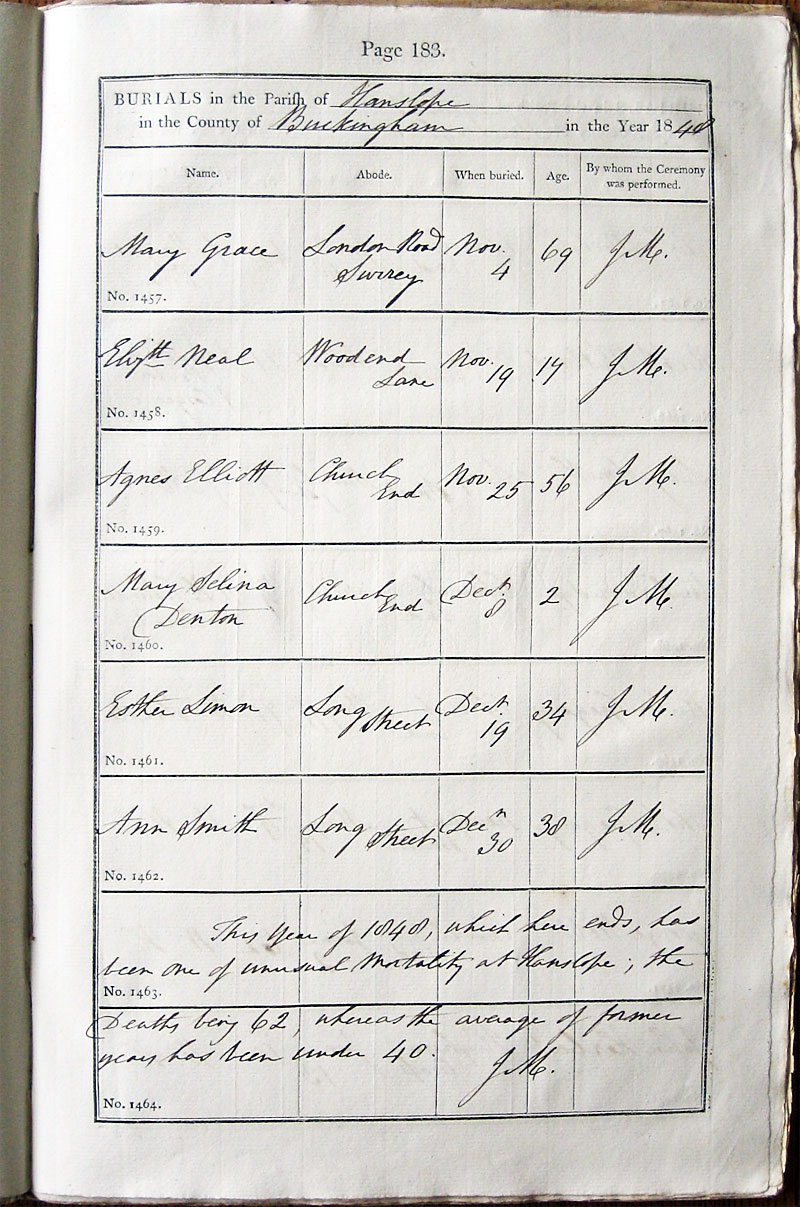 Page 183.
BURIALS in the Parish of Hanslope
in the County of Buckingham in the Year 1848
Name. Abode. When buried. Age. By whom the Ceremony was performed.
Mary Grace London Road Nov. 69 J.M.
Surrey 4
No. 1457.
Elizth Neal Woodend Nov. J.M.
Lane 19
No. 1458.
Agnes Elliott Church Nov. 56 J.M.
End 25
No. 1459.
Mary Selina Church Decr 2 J.M.
Denton End 8
No. 1460.
Esther Simon Long Decr 34 J.M.
Street 19
No. 1461.
Ann Smith Long Decr 38 J.M.
Street 30
No. 1462.
This year of 1848, which here ends, has
been one of unusual Mortality at Hanslope; the
No. 1463.
Deaths being 62, whereas the average of former
years has been under 40. J.M.
No. 1464.